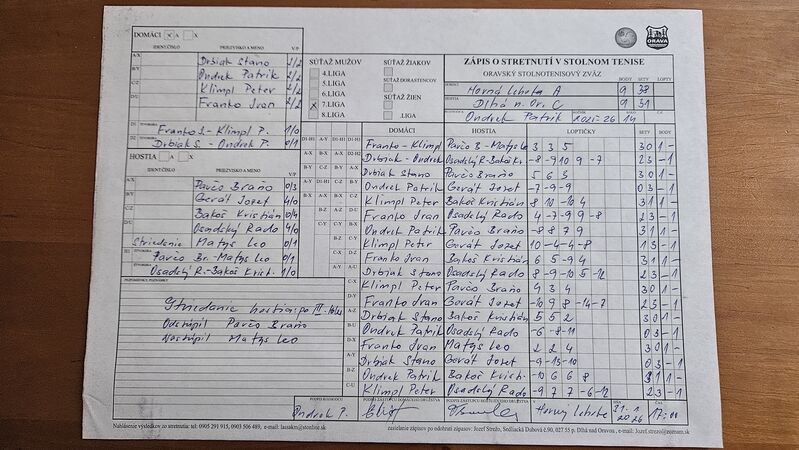 DOMÁCI A X
IDENT.ČÍSLO PRIEZVISKO A MENO V/P
A/X Drbiak Stano 2/2
B/Y Ondrek Patrik 2/2
C/Z Klimpl Peter 2/2
D/U Franko Ivan 2/2
D1 ŠTVORHRA Franko I.-Klimpl P. 1/0
D2 ŠTVORHRA Drbiak S. - Ondrek P. 0/1
HOSTIA A X
IDENT.ČÍSLO PRIEZVISKO A MENO V/P
A/X Pavčo Braňo 0/3
B/Y Gerát Jozef 4/0
C/Z Bakoš Kristián 0/4
D/U Osadský Rado 4/0
Striedanie Matys Leo 0/1
H1 ŠTVORHRA Pavčo Br.-Matys Leo 0/1
Osadský R.-Bakoš Krist. 1/0
Striedanie hostia: po III. kole
Odstúpil Pavčo Braňo
Nastúpil Matys Leo
SÚŤAŽ MUŽOV
4.LIGA
5.LIGA
6.LIGA
x 7.LIGA
8.LIGA
SÚŤAŽ ŽIAKOV
SÚŤAŽ DORASTENCOV
SÚŤAŽ ŽIEN
.LIGA
ORAVA
ZÁPIS O STRETNUTÍ V STOLNOM TENISE
ORAVSKÝ STOLNOTENISOVÝ ZVÄZ BODY SETY LOPTY
DOMÁCI Horná Lehota A 9 38
HOSTIA Dlhá n. Or. C 9 31
Ondrek Patrik 2025-26 14
DOMÁCI HOSTIA LOPTIČKY SETY BODY
Franko-Klimpl Pavčo B.-Matys Leo 3 3 5 3 0 1 -
Drbiak-Ondrek Osadský R.-Bakoš Kr. -8 -9 10 9 -7 2 3 - 1
Drbiak Stano Pavčo Braňo 5 6 5 3 0 1 -
Ondrek Patrik Gerát Jozef -7 -9 -9 0 3 - 1
Klimpl Peter Bakoš Kristián 8 10 -10 4 3 1 1 -
Franko Ivan Osadský Rado 4 -7 -9 9 -8 2 3 - 1
Ondrek Patrik Pavčo Braňo -8 8 7 9 3 1 1 -
Klimpl Peter Gerát Jozef 10 -4 -4 -8 1 3 - 1
Franko Ivan Bakoš Kristián 6 5 -9 4 3 1 1 -
Drbiak Stano Osadský Rado -8 -9 10 5 -12 2 3 - 1
Klimpl Peter Pavčo Braňo 9 3 4 3 0 1 -
Franko Ivan Gerát Jozef -10 9 8 -14 -7 2 3 - 1
Drbiak Stano Bakoš Kristián 5 5 2 3 0 1 -
Ondrek Patrik Osadský Rado -6 -8 -11 0 3 - 1
Franko Ivan Matys Leo 2 2 4 3 0 1 -
Drbiak Stano Gerát Jozef -9 -15 -10 0 3 - 1
Ondrek Patrik Bakoš Krist. -10 6 6 8 3 1 1 -
Klimpl Peter Osadský Rado -9 7 7 -6 -12 2 3 - 1
PODPIS ROZHODCU Ondrek P.
Horná Lehota 31.1 2026 17:00
Nahlásenie výsledkov zo stretnutia: tel: 0905 291 915, 0903 506 489, e-mail: lassakm@stonline.sk
zasielanie zápisov po odohratí zápasov: Jozef Strežo, Sedliacka Dubová č.90, 027 55 p. Dlhá nad Oravou , e-mail: Jozef.strezo@zoznam.sk